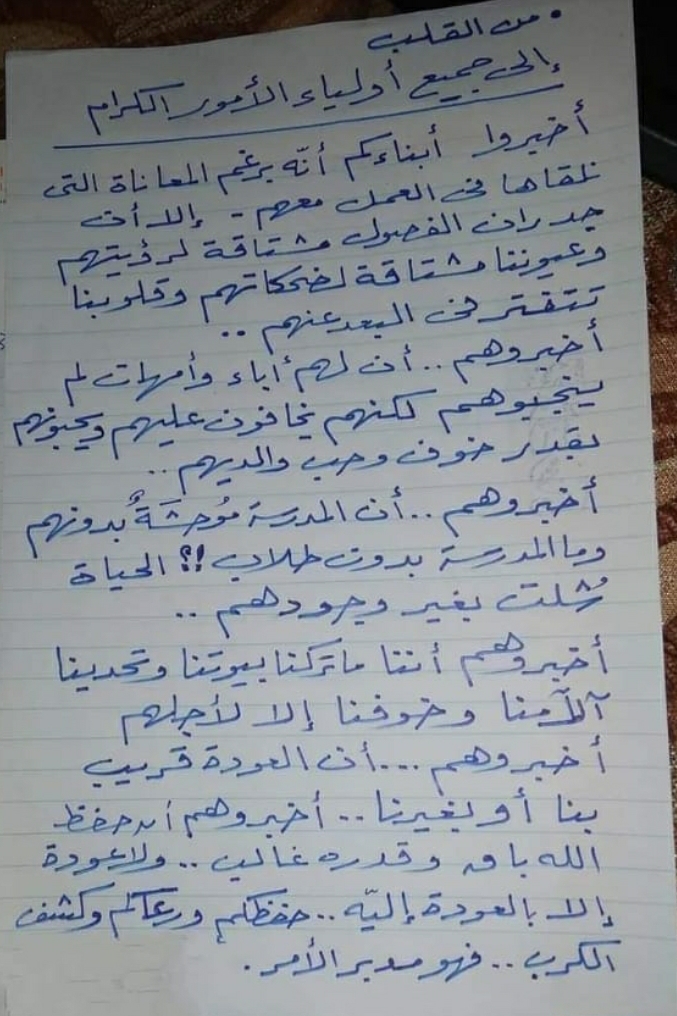 • من القلب
إلى جميع أولياء الأمور الكرام
أخبروا أبناءكم أنّه برغم المعاناة التى
نلقاها فى العمل معهم - إلا أن
جدران الفصول مشتاقة لرؤيتهم
وعيوننا مشتاقة لضحكاتهم وقلوبنا
تتفتر فى البعد عنهم ..
أخبروهم .. أن لهم أباء وأمهات لم
ينجبوهم لكنهم يخافون عليهم ويحبونهم
بقدر خوف وحب والديهم ..
أخبروهم .. أن المدرسة مُوحشَةٌ بدونهم
وما المدرسة بدون طلاب !؟ الحياة
شُلت بغير وجودهم ..
أخبروهم أننا ماتركنا بيوتنا وتحدينا
آلآمنا وخوفنا إلا لأجلهم
أخبروهم ... أن العودة قريب
بنا أو بغيرنا .. أخبروهم أن حفظ
الله باق وقدره غالب .. ولاعودة
إلا بالعودة إليّه .. حفظكم ورعاكم وكشف
الكرب .. فهو مدبر الأمر .